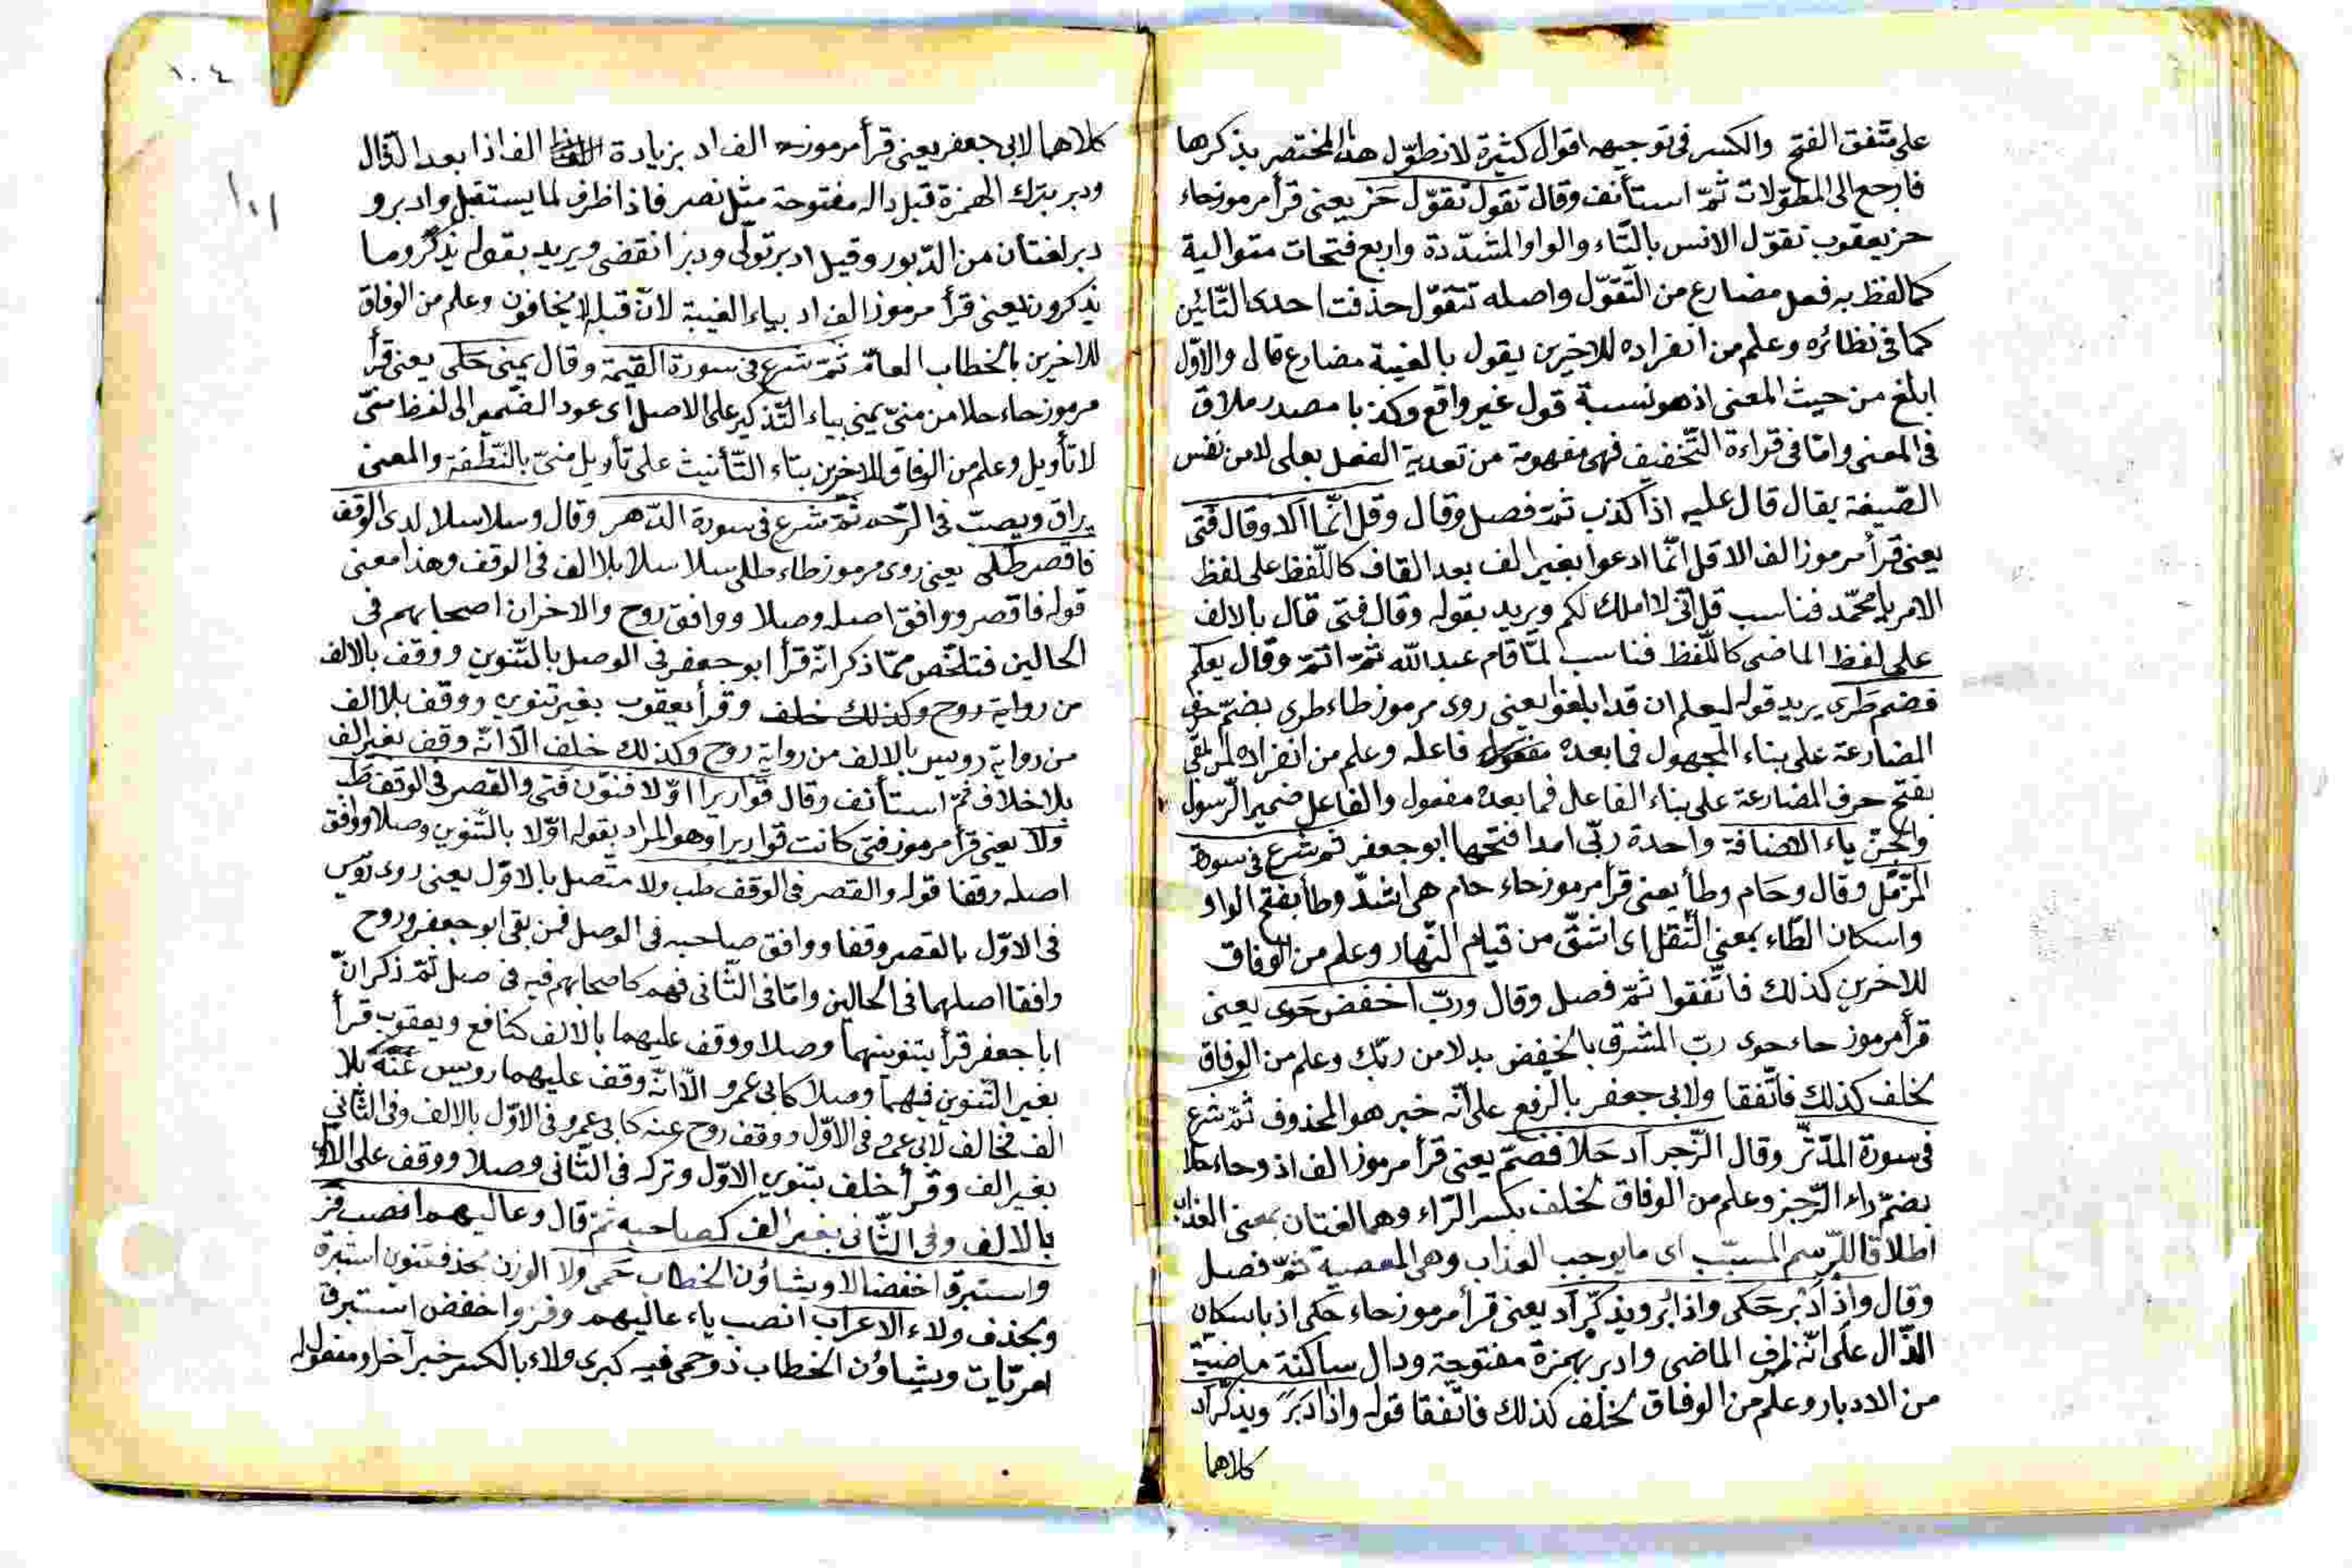 على متفق الفتح والكسر فى توجيهه اقوال كثيرة لانطوّل هذا المختصر بذكرها
فارجع الى المطوّلات ثمّ استأنف وقال تقول تقوّل حَز يعنى قرأ مرموز حاء
حز يعقوب تقوّل الانس بالتّاء والواو المشدّدة واربع فتحات متوالية
كما لفظ به فعل مضارع من التّقوّل واصله تتقوّل حذفت احدى التّائين
كما فى نظائره وعلم من انفراده للاخرين يقول بالغيبة مضارع قال والاوّل
ابلغ من حيث المعنى اذ هو نسبة قول غير واقع وكذبا مصدر ملاق
فى المعنى وامّا فى قراءة التّخفيف فهى مفهومة من تعدية الفعل بعلى لا من نفس
الصّيغة يقال قال عليه اذا كذب ثمّ فصل وقال وقل انّما الا وقال فتى
يعنى قرأ مرموز الف الا قل انّما ادعوا بغير الف بعد القاف كاللّفظ على لفظ
الامر يا محمّد فناسب قل انّى لا املك لكم ويريد بقوله وقال فتى قال بالالف
على لفظ الماضى كاللّفظ فناسب لمّا قام عبد الله ثمّ اتمّ وقال يعلم
فضم طَرى يريد قوله ليعلم ان قد ابلغوا يعنى روى مرموز طاء طرى بضمّ حرف
المضارعة على بناء المجهول فما بعده فاعله وعلم من انفراده لمن بقى
بفتح حرف المضارعة على بناء الفاعل فما بعده مفعول والفاعل ضمير الرّسول
والجنّ ياء الاضافة واحدة ربّى امدا فتحها ابو جعفر ثم شرع فى سورة
المزّمّل وقال وحَام وطأ يعنى قرأ مرموز حاء حام هى اشدّ وطأ بفتح الواو
واسكان الطّاء بمعنى الثّقل اى اشقّ من قيام النّهار وعلم من الوفاق
للاخرين كذلك فاتّفقوا ثمّ فصل وقال وربّ اخفض حَوى يعنى
قرأ مرموز حاء حوى ربّ المشرق بالخفض بدلا من ربّك وعلم من الوفاق
لخلف كذلك فاتّفقا ولابى جعفر بالرّفع على انّه خبر هو المحذوف ثمّ شرع
فى سورة المدّثّر وقال الرّجز اد حَلا فضمّ يعنى قرأ مرموز الف اذ وحاء حلا
بضمّ راء الرّجز وعلم من الوفاق لخلف بكسر الرّاء وهما لغتان بمعنى العذاب
اطلاقا للاسم المسبّب اى ما يوجب العذاب وهى المعصية ثمّ فصل
وقال واذ ادبر حَكى واذا دبر ويذكّر اد يعنى قرأ مرموز حاء حكى اذ باسكان
الذّال على انّه ظرف الماضى وادبر بهمزة مفتوحة ودال ساكنة ماضية
من الادبار وعلم من الوفاق لخلف كذلك فاتّفقا قوله واذا دَبَر ويذكّر اد
كلاهما
١٠٤
١٠١
كلاهما لابى جعفر يعنى قرأ مرموز الف اد بزيادة الف اذا بعد الذّال
ودبر بترك الهمزة قبل داله مفتوحة مثل نصر فاذا ظرف لما يستقبل وادبر و
دبر لغتان من الدّبور وقيل ادبر تولّى ودبر انقضى ويريد بقوله يذكّر وما
يذكرون يعنى قرأ مرموز الف اد بياء الغيبة لانّ قبله لا يخافون وعلم من الوفاق
للاخرين بالخطاب العامّ ثمّ شرع فى سورة القيمة وقال يمنى حَلى يعنى قرأ
مرموز حاء حلا من منىّ يمنى بياء التّذكير على الاصل اى عود الضّمير الى لفظ منىّ
لا تأويل وعلم من الوفاق للاخرين بتاء التّأنيث على تأويل منىّ بالنّطفة والمعنى
يراق ويصبّ فى الرّحم ثمّ شرع فى سورة الدّهر وقال وسلاسلا لدى الوقف
فاقصر طلى يعنى روى مرموز طاء طلى سلاسلا بلا الف فى الوقف وهذا معنى
قوله فاقصر ووافق اصله وصلا ووافق روح والاخران اصحابهم فى
الحالين فتلخّص ممّا ذكر انّه قرأ ابو جعفر فى الوصل بالتّنوين ووقف بالالف
من رواية روح وكذلك خلف وقرأ يعقوب بغير تنوين ووقف بلا الف
من رواية رويس بالالف من رواية روح وكذلك خلف الّا انّه وقف بغير الف
بلا خلاف ثمّ استأنف وقال قواريرا اوّلا فنوّن فتى والقصر فى الوقف طب
ولا يعنى قرأ مرموز فتى كانت قواريرا وهو المراد بقوله اوّلا بالتّنوين وصلا ووافق
اصله وقفا قوله والقصر فى الوقف طب ولا متّصل بالاوّل يعنى روى رويس
فى الاوّل بالقصر وقفا ووافق صاحبه فى الوصل فمن بقى ابو جعفر وروح
وافقا اصلهما فى الحالين وامّا فى الثّانى فهم كاصحابهم فيه فى صل ثمّ ذكر انّ
ابا جعفر قرأ بتنوينهما وصلا ووقف عليهما بالالف كنافع ويعقوب قرأ
بغير التّنوين فيهما وصلا كابى عمرو الّا انّه وقف عليهما رويس عنه بلا
الف فخالف لابى عمرو فى الاوّل ووقف روح عنه كابى عمرو فى الاوّل بالالف وفى الثّانى
بغير الف وقرأ خلف بتنوين الاوّل وتركه فى الثّانى وصلا ووقف على الاوّل
بالالف وفى الثّانى بغير الف كصاحبه ثمّ قال وعاليهم انصب فز
واستبرق اخفضا الا ويشاؤن الخطاب حَمى ولا الوزن بحذف تنوين استبرق
وبحذف ولاء الاعراب انصب ياء عاليهم وفز واخفض استبرق
ويشاؤن الخطاب ذو حمى فيه كبرى ولاء بالكسر خبر آخر او مفعول له